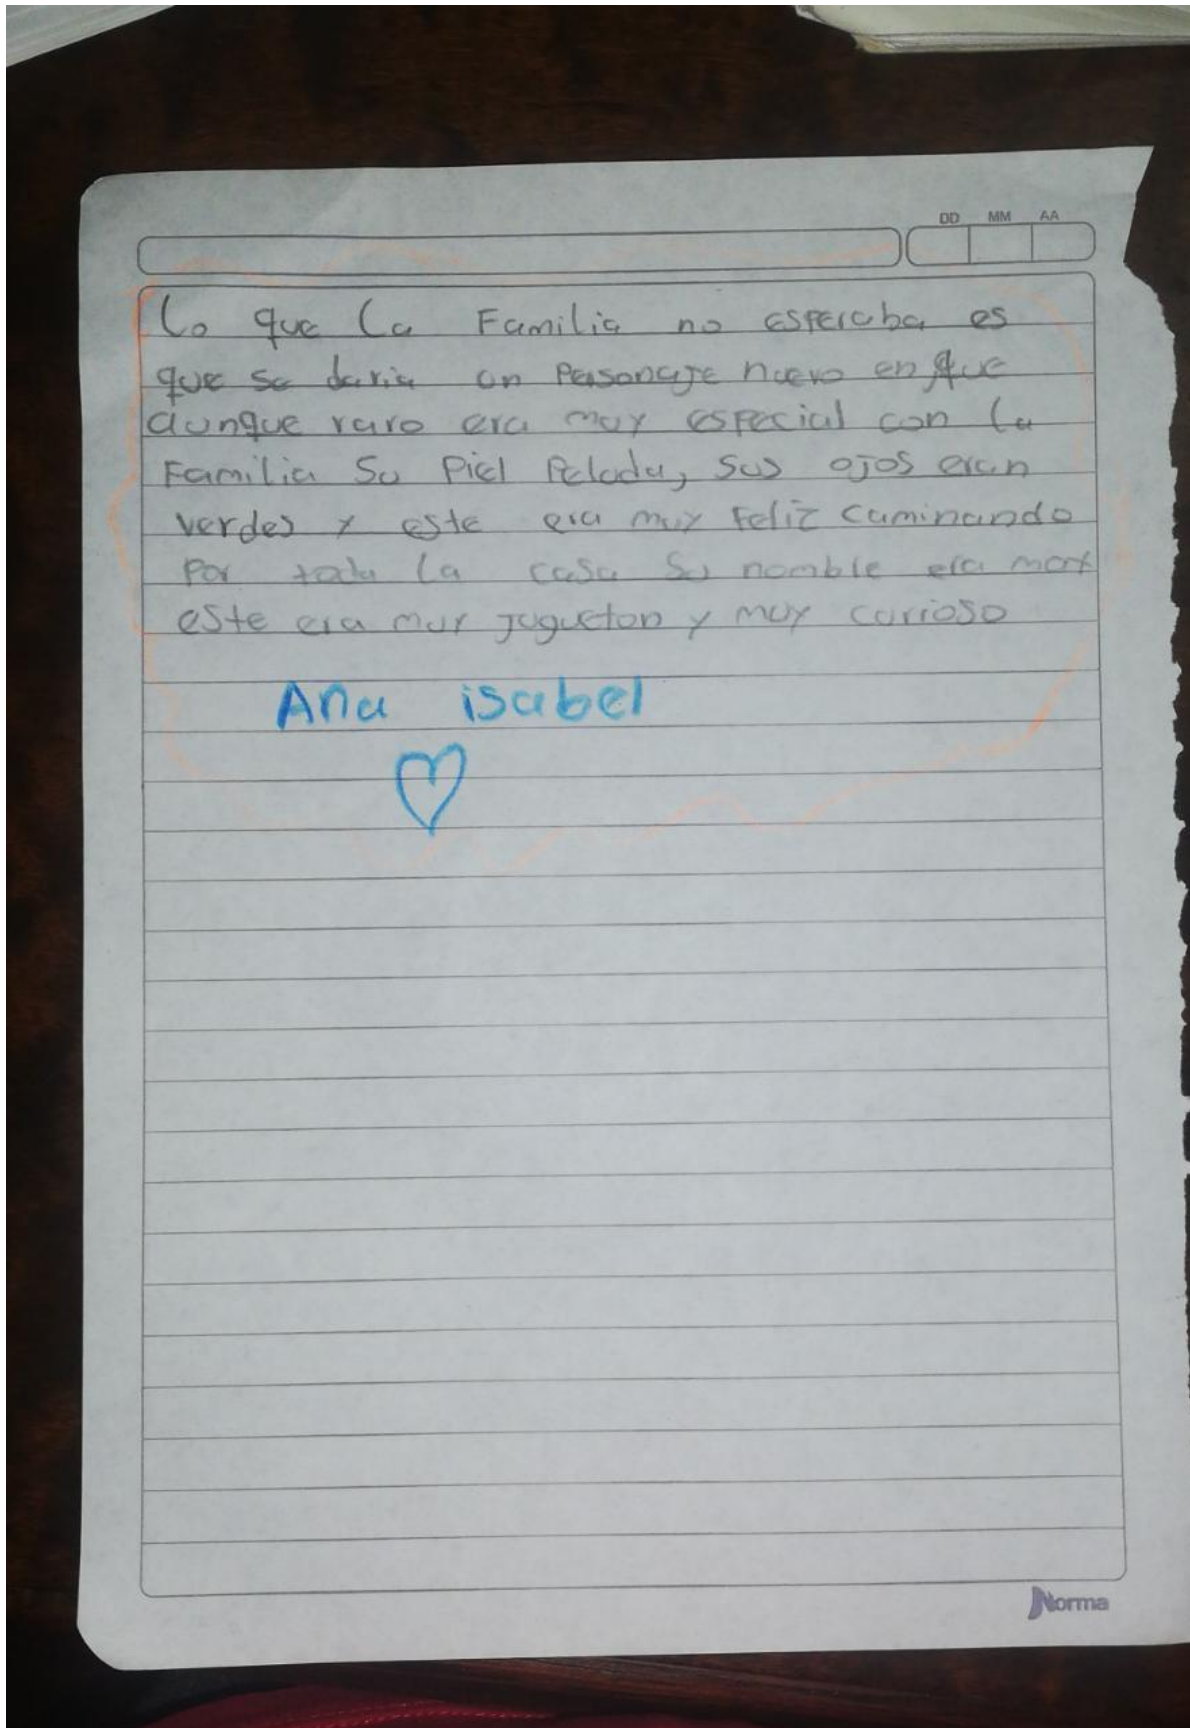 DD MM AA
Lo que La Familia no esperaba es
que se daria un Personaje nuevo en que
aunque raro era muy especial con la
Familia Su Piel Pelada, sus ojos eran
verdes y este era muy Feliz caminando
Por toda la casa Su nombre era max
este era muy jugueton y muy curioso
Ana isabel
Norma